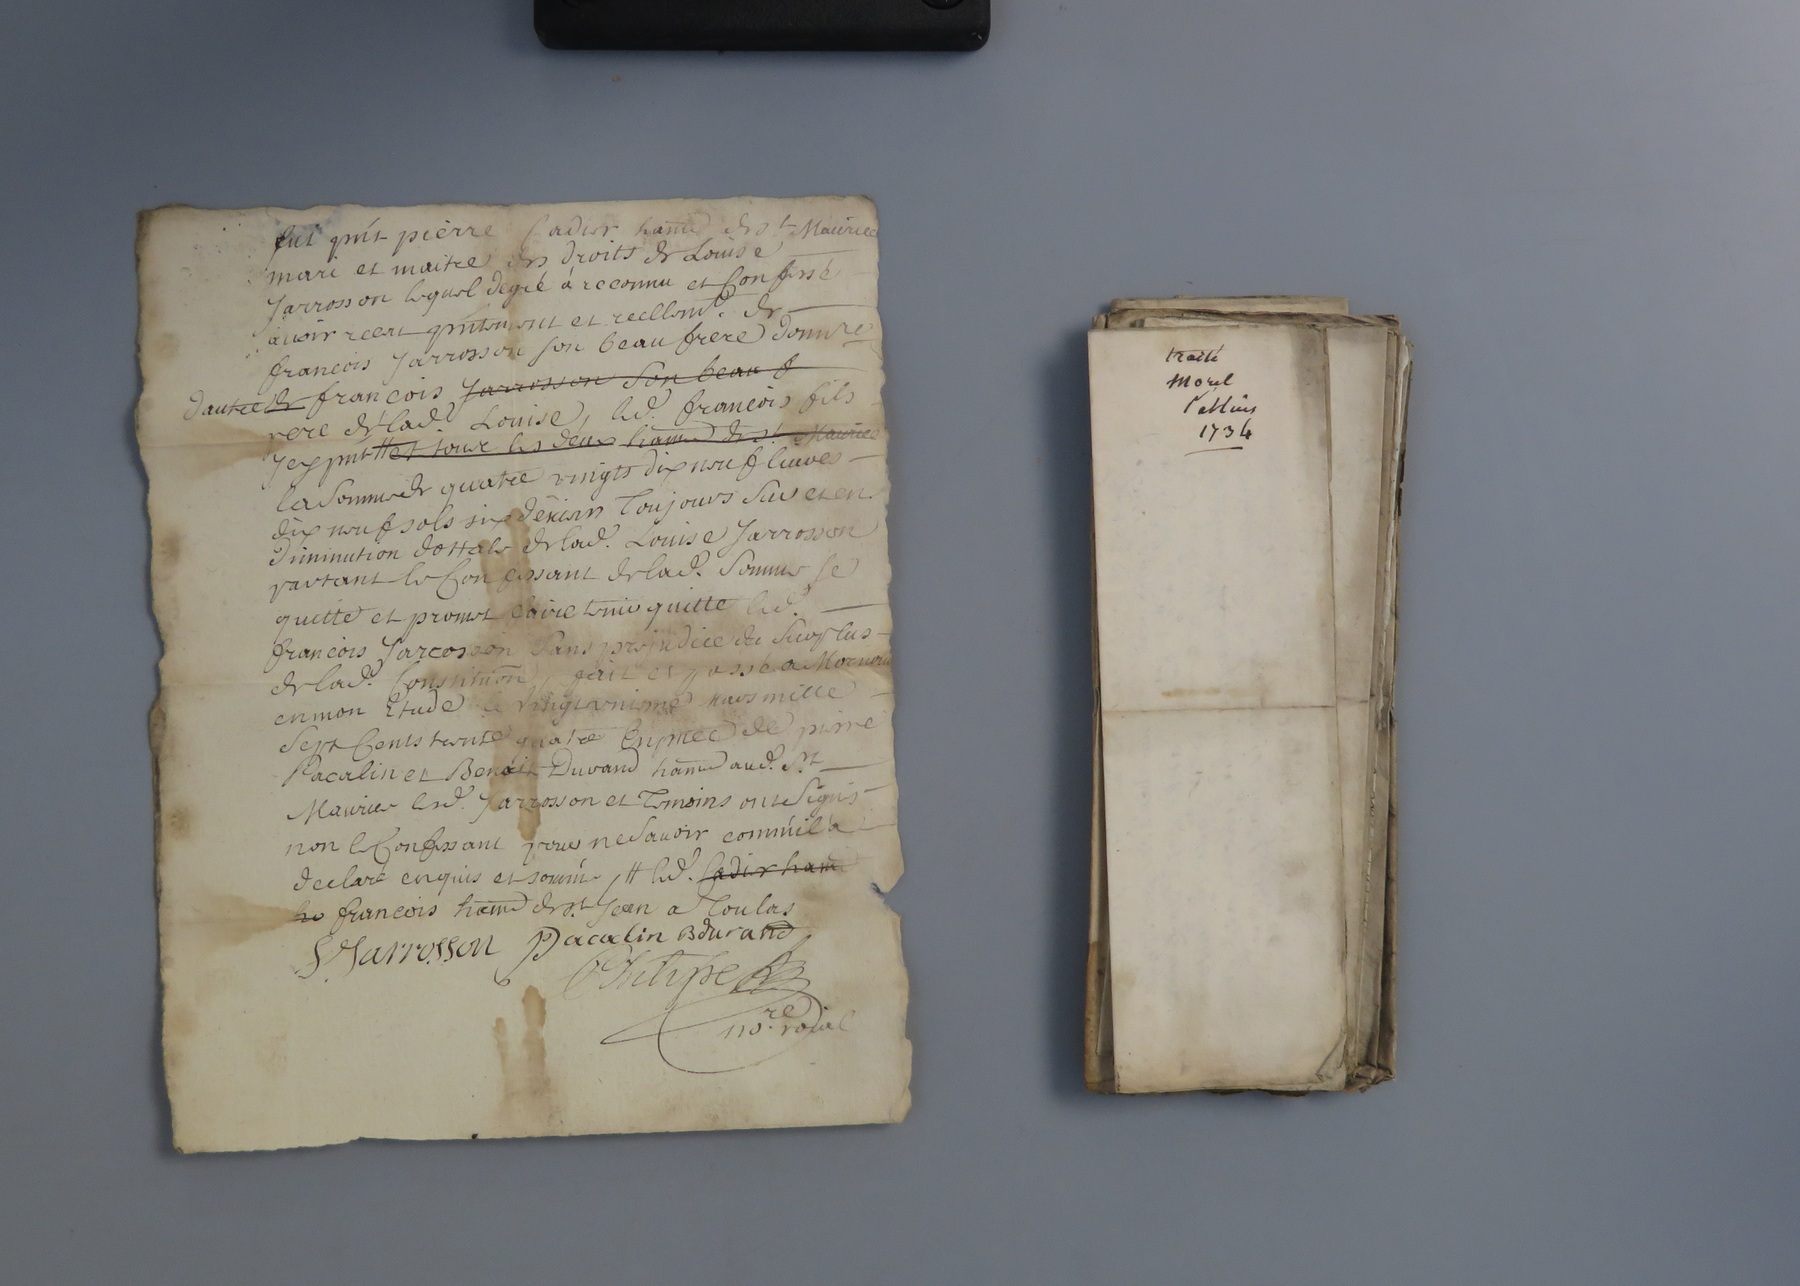 fut pnt pierre Cadier hãnd de st Maurice
mari et maitre des droits de Louise
Jarrosson lequel degré à reconnu et Confessé
avoir receu pntement et reellemt. de
françois Jarrosson son beau frere
dautre de françois Jarrosson son beau f
rere de lad. Louise, led. françois fils
Jcy pnt # et tous les deux hãnd de st. Maurice
la Somme de quatre vingts dix neuf livres
dix neuf sols six deniers Toujours Sus et en
Diminution dottale de lad. Louise Jarrosson
partant le Confessant de lad. Somme se
quitte et promet faire tenir quitte led.
françois Jarrosson Sans prejudice du Surplus
de lad. Constitũon, fait et passé a Mornand
en mon Etude le mars mille
Sept Cents trente quatre En pnce de pierre
Pacalin et Benoit Durand hãnd aud. St
Maurice led. Jarrosson et Temoins ont Signé
non le Confessant pour ne Savoir comme il a
declaré enquis et sommé, # led. Cadier hand
françois hãnd de st Jean a Toulas
Jarrosson Pacalin B durand
Philipe
nore. roial
traité
Morel
1734